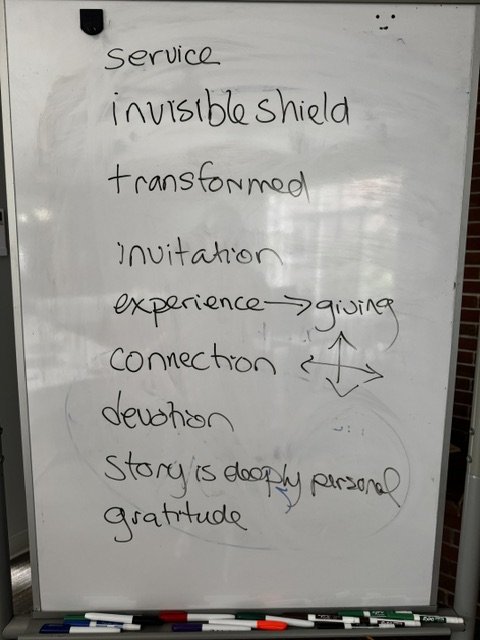 service
invisible shield
transformed
invitation
experience → giving
connection
devotion
story is deeply personal
gratitude